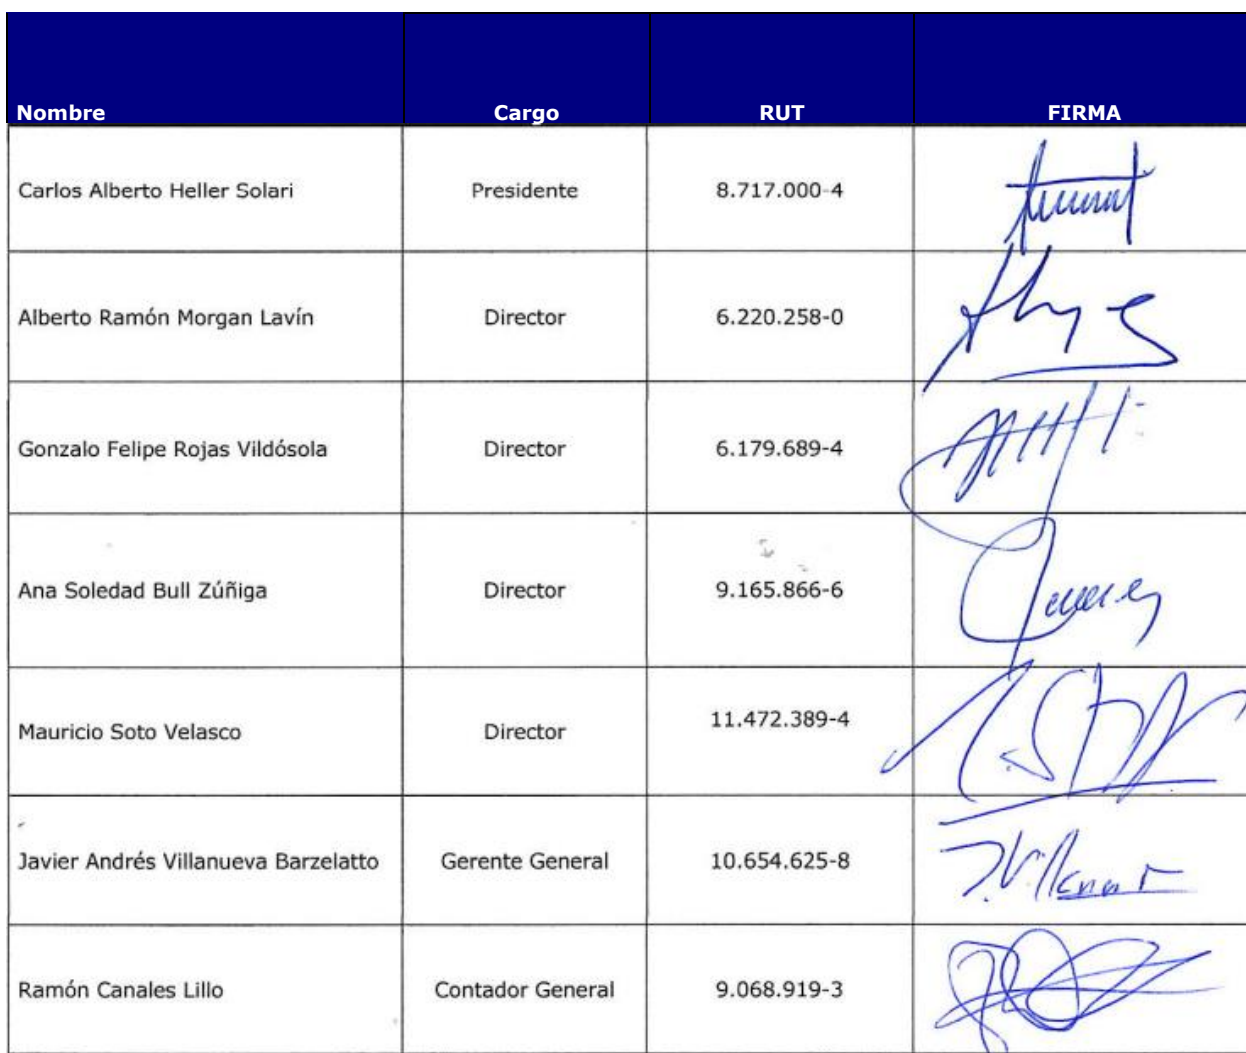 Nombre Cargo RUT FIRMA
Carlos Alberto Heller Solari Presidente 8.717.000-4
Alberto Ramón Morgan Lavín Director 6.220.258-0
Gonzalo Felipe Rojas Vildósola Director 6.179.689-4
Ana Soledad Bull Zúñiga Director 9.165.866-6
Mauricio Soto Velasco Director 11.472.389-4
Javier Andrés Villanueva Barzelatto Gerente General 10.654.625-8
Ramón Canales Lillo Contador General 9.068.919-3